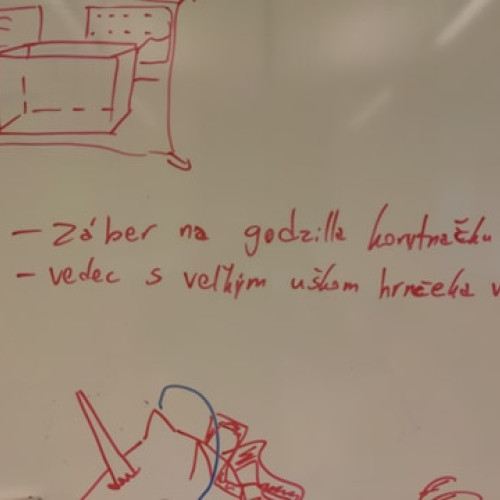 - záber na godzilla korytnačku
- vedec s veľkým uškom hrnčeka v